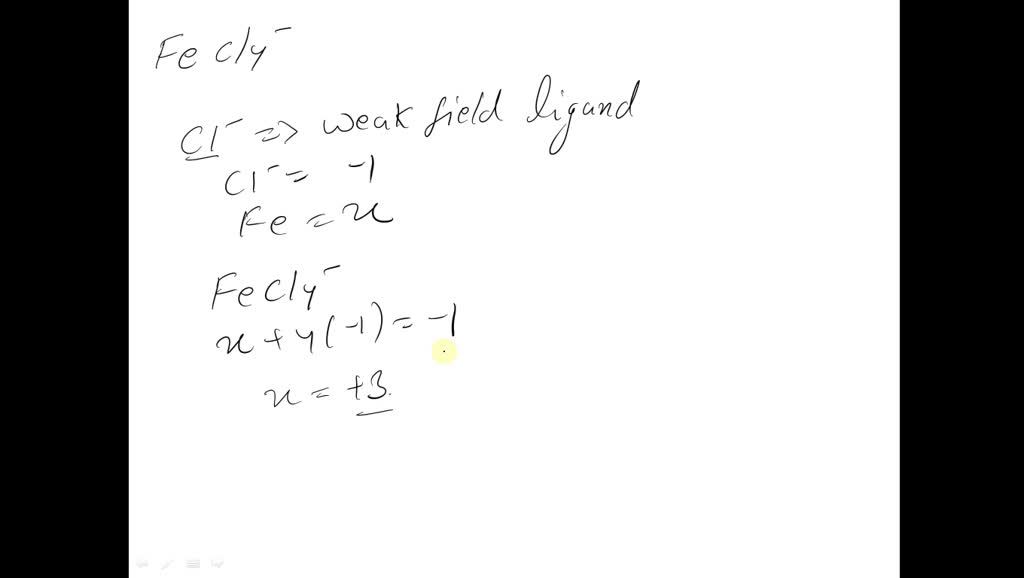 FeCl4⁻
Cl⁻ => weak field ligand
Cl⁻ = -1
Fe = x
FeCl4⁻
x + 4(-1) = -1
x = +3